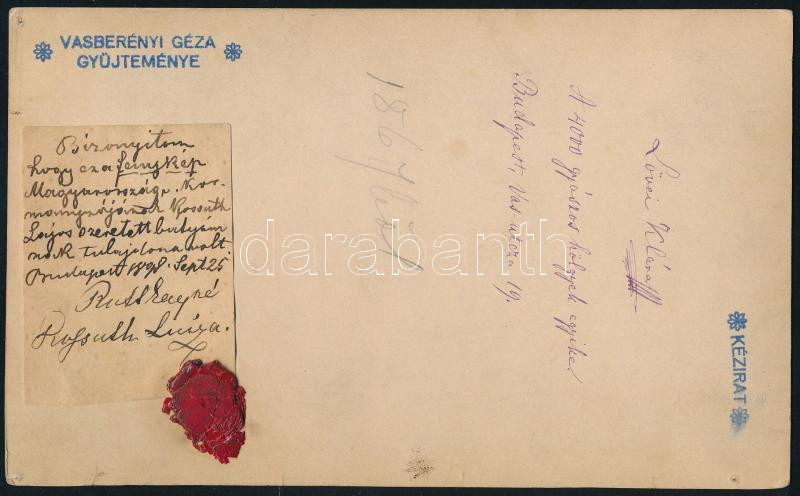 VASBERÉNYI GÉZA
GYŰJTEMÉNYE
Bizonyitom
hogy ez a fenykép
Magyarország v. Kor-
mányzójának Kossuth
Lajos szeretett bátyám
nak tulajdona volt
Budapest 1898. Sept 25
Ruttkayné
Kossuth Luiza.
1867ből
Lövei Klára
A 4000 gyászos hölgyek egyike
Budapest, Vas-utcza 19.
KÉZIRAT
darabanth